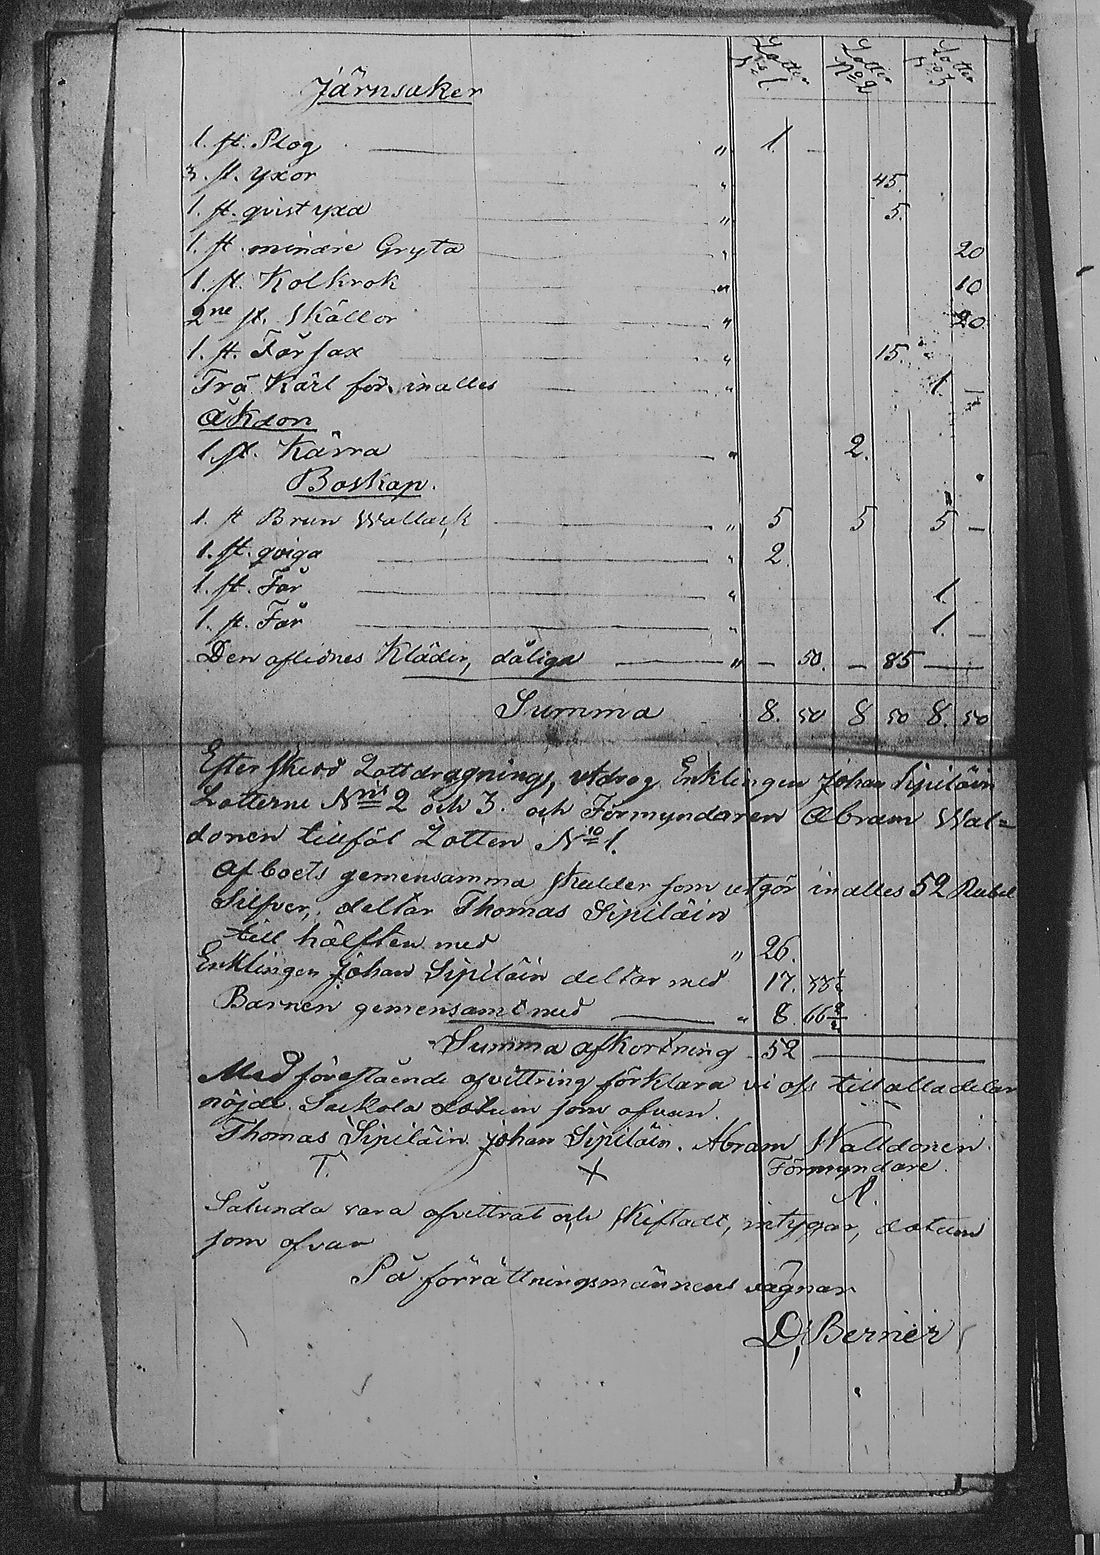 Lotten N:o 1 Lotten N:o 2 Lotten N:o 3
Järnsaker
1. st. Plog " 1. –
3. st. yxor " 45.
1. st. qvist yxa " 5.
1. st. mindre Gryta " 20
1. st. Kolkrok " 10
2ne st. Skällor " 20.
1. st. Får sax " 15.
Trä Kärl för inalles " 1. –
Åkdon
1. st. Kärra " 2.
Boskap.
1. st Brun Wallack " 5 5 5 –
1. st. qviga " 2.
1. st. Får " 1.
1. st. Får " 1. –
Den aflidnes Kläder, dåliga " – 50. – 85 –
Summa 8. 50 8 50 8. 50
Efter skedd Lottdragning, utdrog Enklingen Johan Sipiläin
Lotterne N:ris 2 och 3. och Förmyndaren Abram Wal=
donen tillföl Lotten N:ro 1.
Af boets gemensamma skulder som utgör inalles 52 Rubel
Silfver, deltar Thomas Sipiläin
till hälften med " 26.
Enklingen Johan Sipiläin deltar med 17. 33 1/3
Barnen gemensamt med " 8. 66 2/3
Summa afkortning 52 –
Med föreslående afvittring förklara vi oss till alla delar
nöjde. Sackola datum som ofvan.
Thomas Sipiläin. Johan Sipiläin. Abram Walldonen
T. X Förmyndare.
A.
Sålunda vara afvittrat och skiftadt, intygar, datum
som ofvan
På förrättningsmännens vägnar
D. Bernér